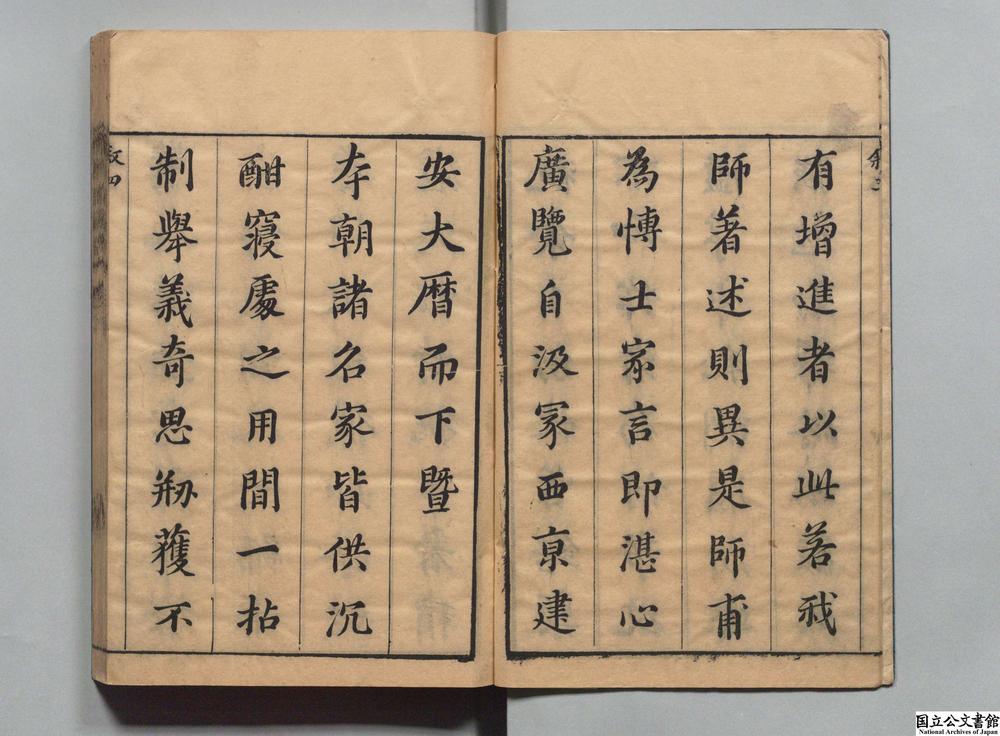 有增進者以此若我
師著述則異是師甫
為愽士家言即湛心
廣覽自汲冢西京建
安大曆而下暨
本朝諸名家皆供沉
酣寢處之用間一拈
制舉義奇思刱獲不
叙四
国立公文書館
National Archives of Japan